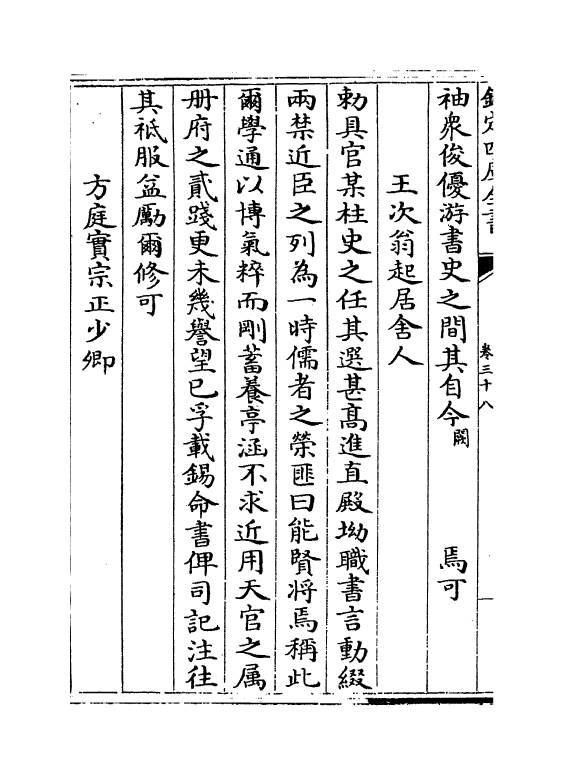 欽定四庫全書
卷三十八
袖衆俊優游書史之間其自今闕　　　焉可
王次翁起居舍人
勅具官某柱史之任其選甚髙進直殿坳職書言動綴
兩禁近臣之列為一時儒者之榮匪曰能賢將焉稱此
爾學通以博氣粹而剛蓄養亭涵不求近用天官之属
册府之貳踐更未幾譽望已孚載錫命書俾司記注往
其祗服益勵爾修可
方庭實宗正少卿